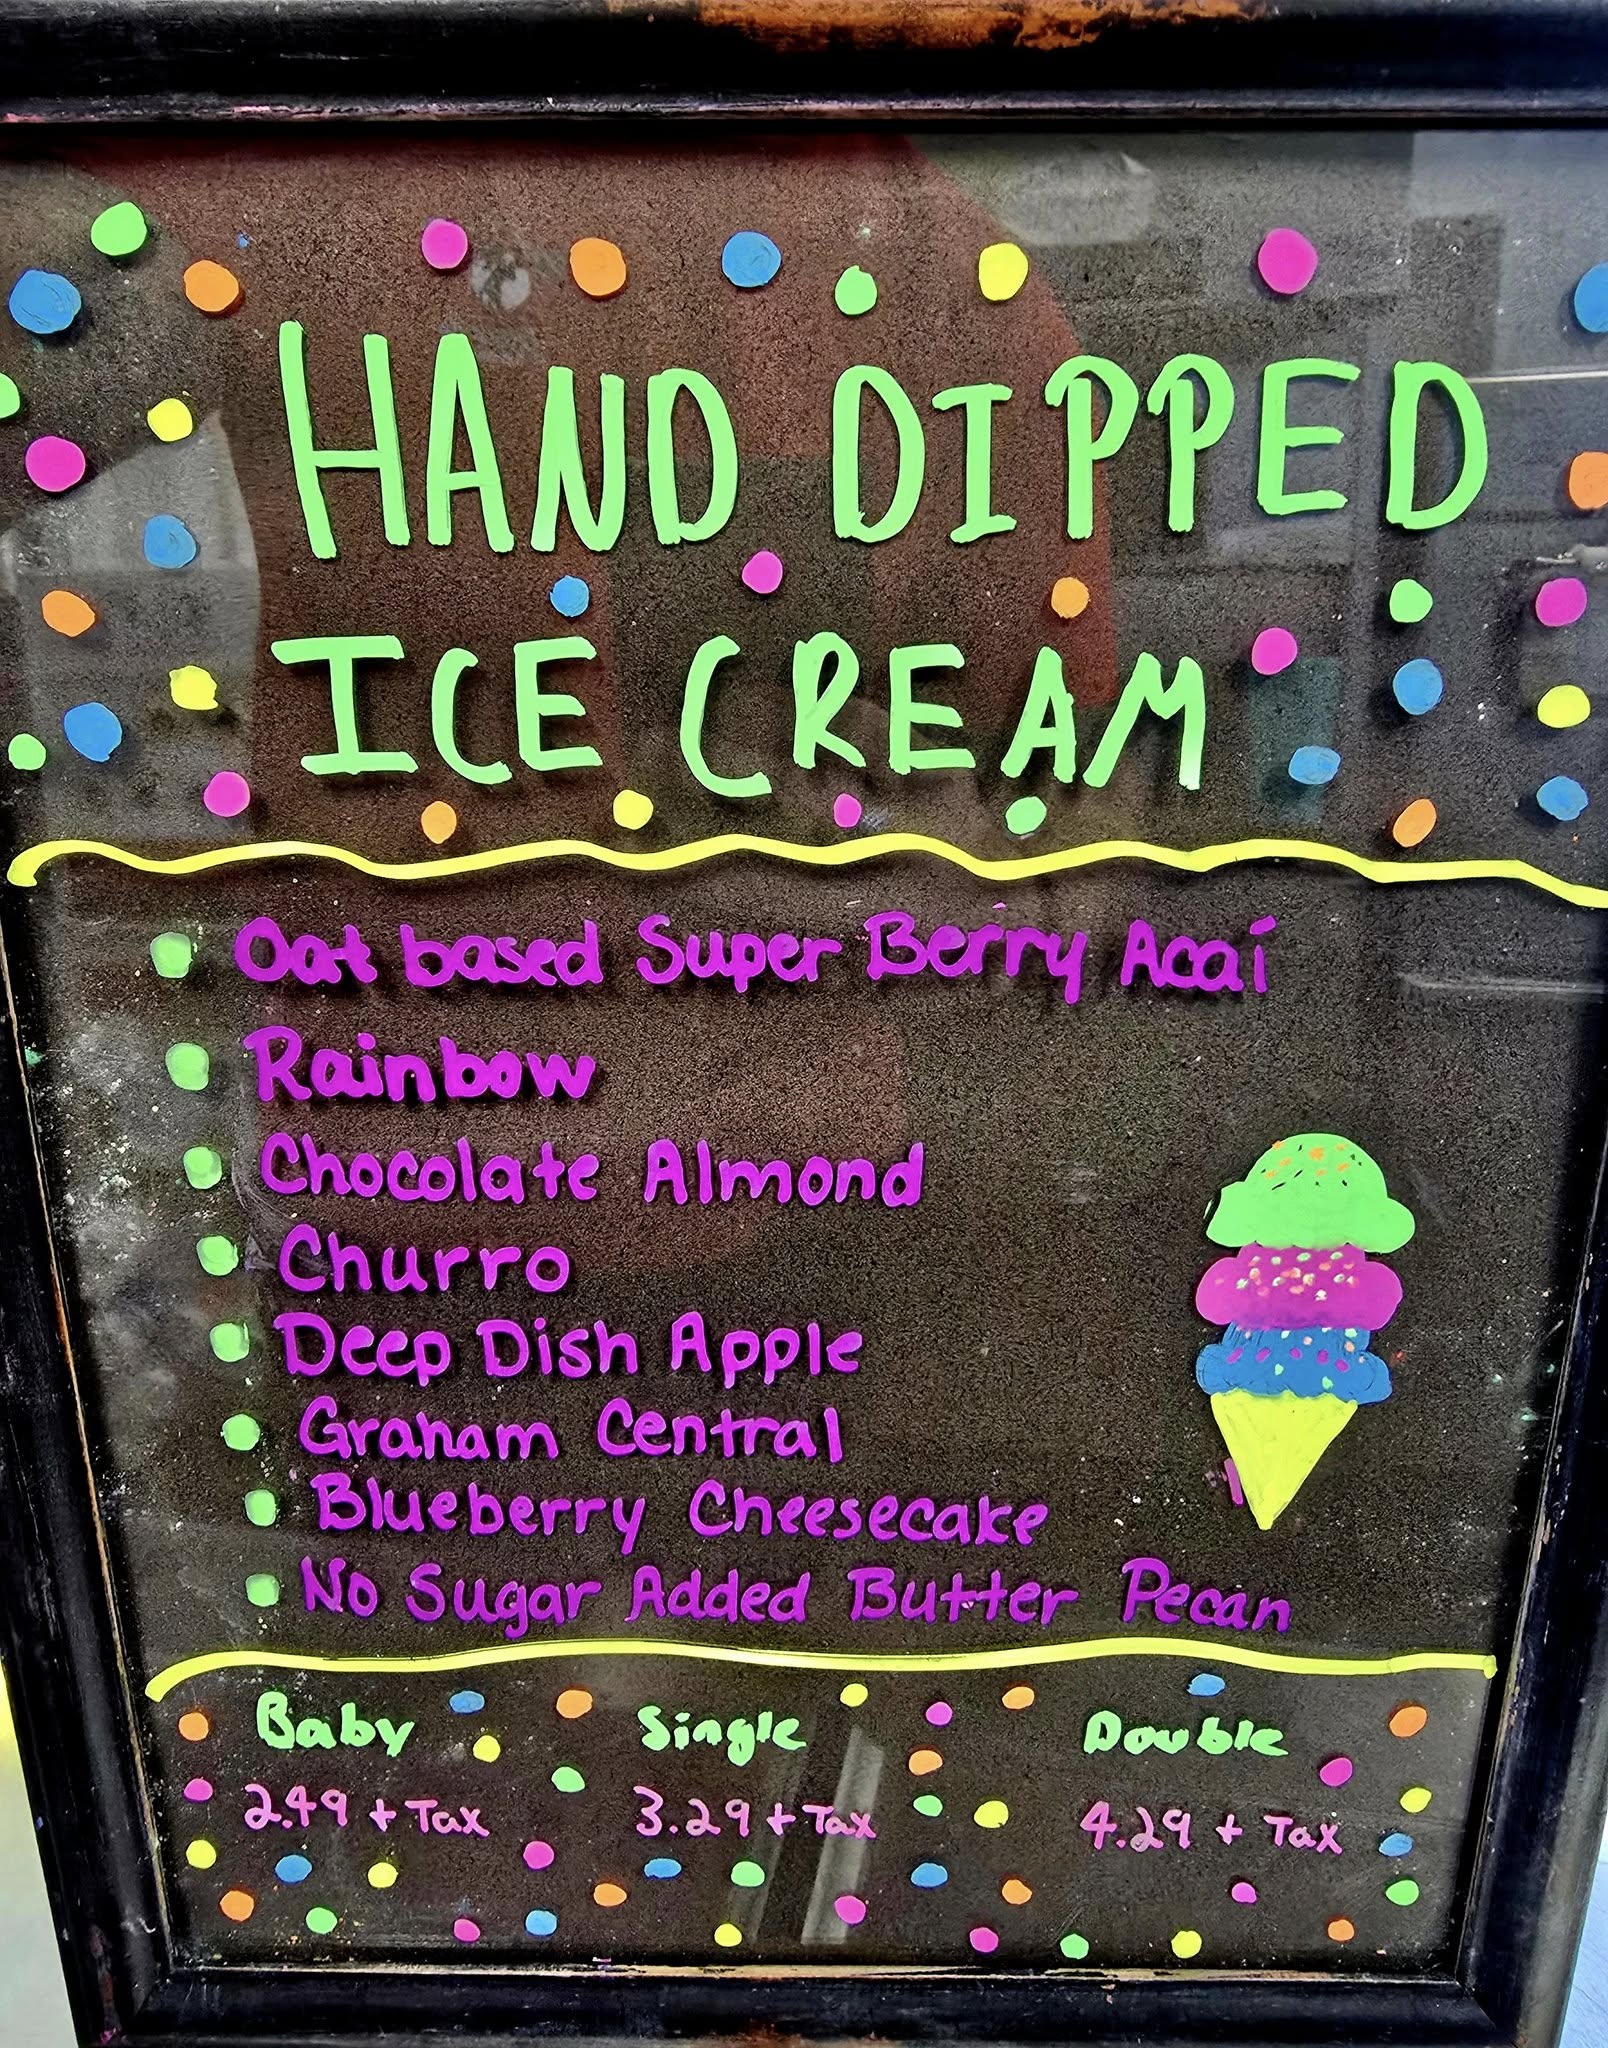 HAND DIPPED
ICE CREAM
Oat based Super Berry Acaí
Rainbow
Chocolate Almond
Churro
Deep Dish Apple
Graham Central
Blueberry Cheesecake
No Sugar Added Butter Pecan
Baby Single Double
2.49 + Tax 3.29 + Tax 4.29 + Tax